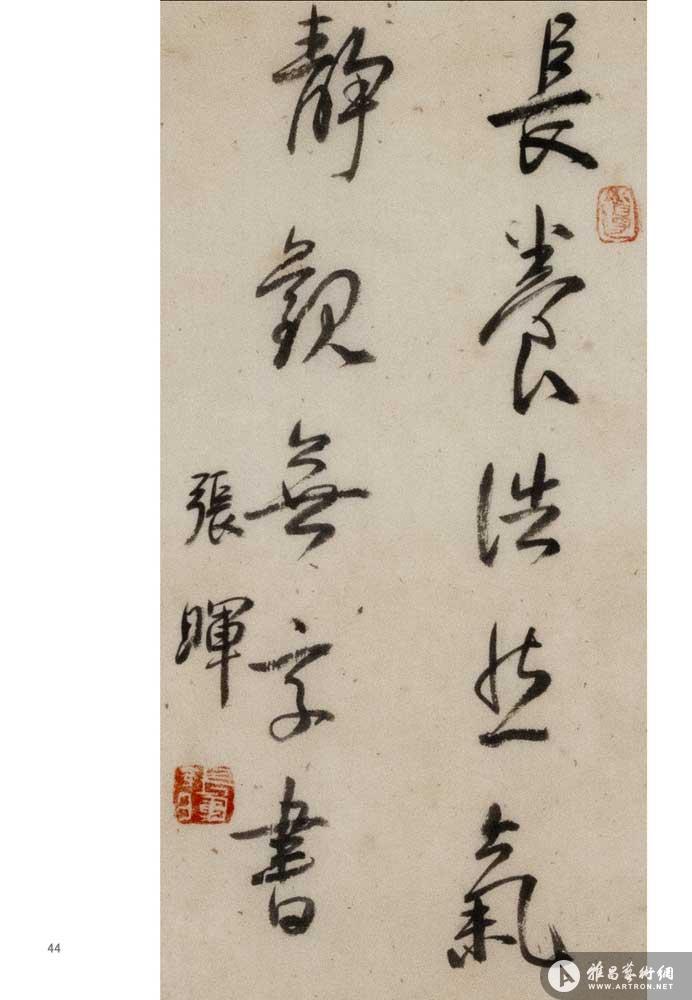 長養浩然氣
靜觀無字書
張暉
44
雅昌藝術網
WWW.ARTRON.NET